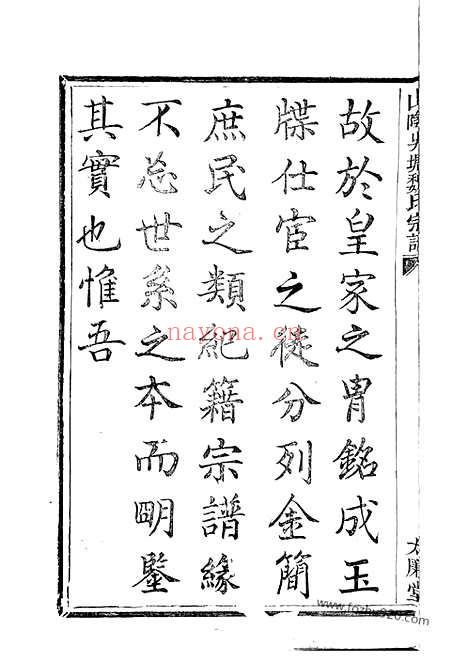 山陰吳塘魏氏宗譜
大廉堂
故於皇家之胄銘成玉
牒仕宦之徒分列金簡
庶民之類紀籍宗譜緣
不忘世系之本而明鑒
其實也惟吾
nayona.cn
www.fozhu920.com